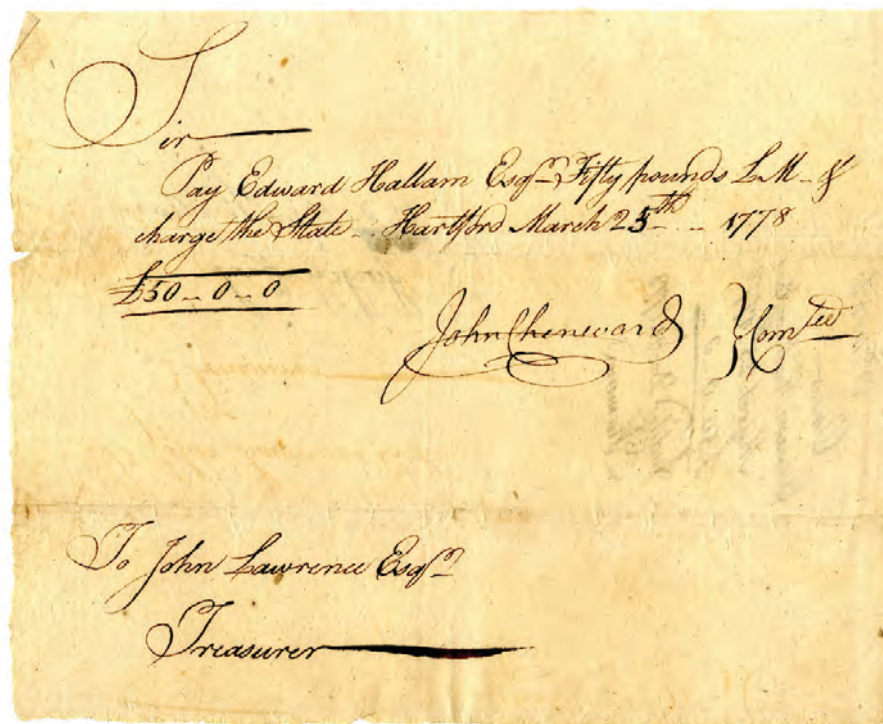 Sir
Pay Edward Hallam Esqr Fifty pounds L.M. &
charge the State Hartford March 25th 1778
£50-0-0
John Chenevard } Comtee
To John Lawrence Esqr
Treasurer